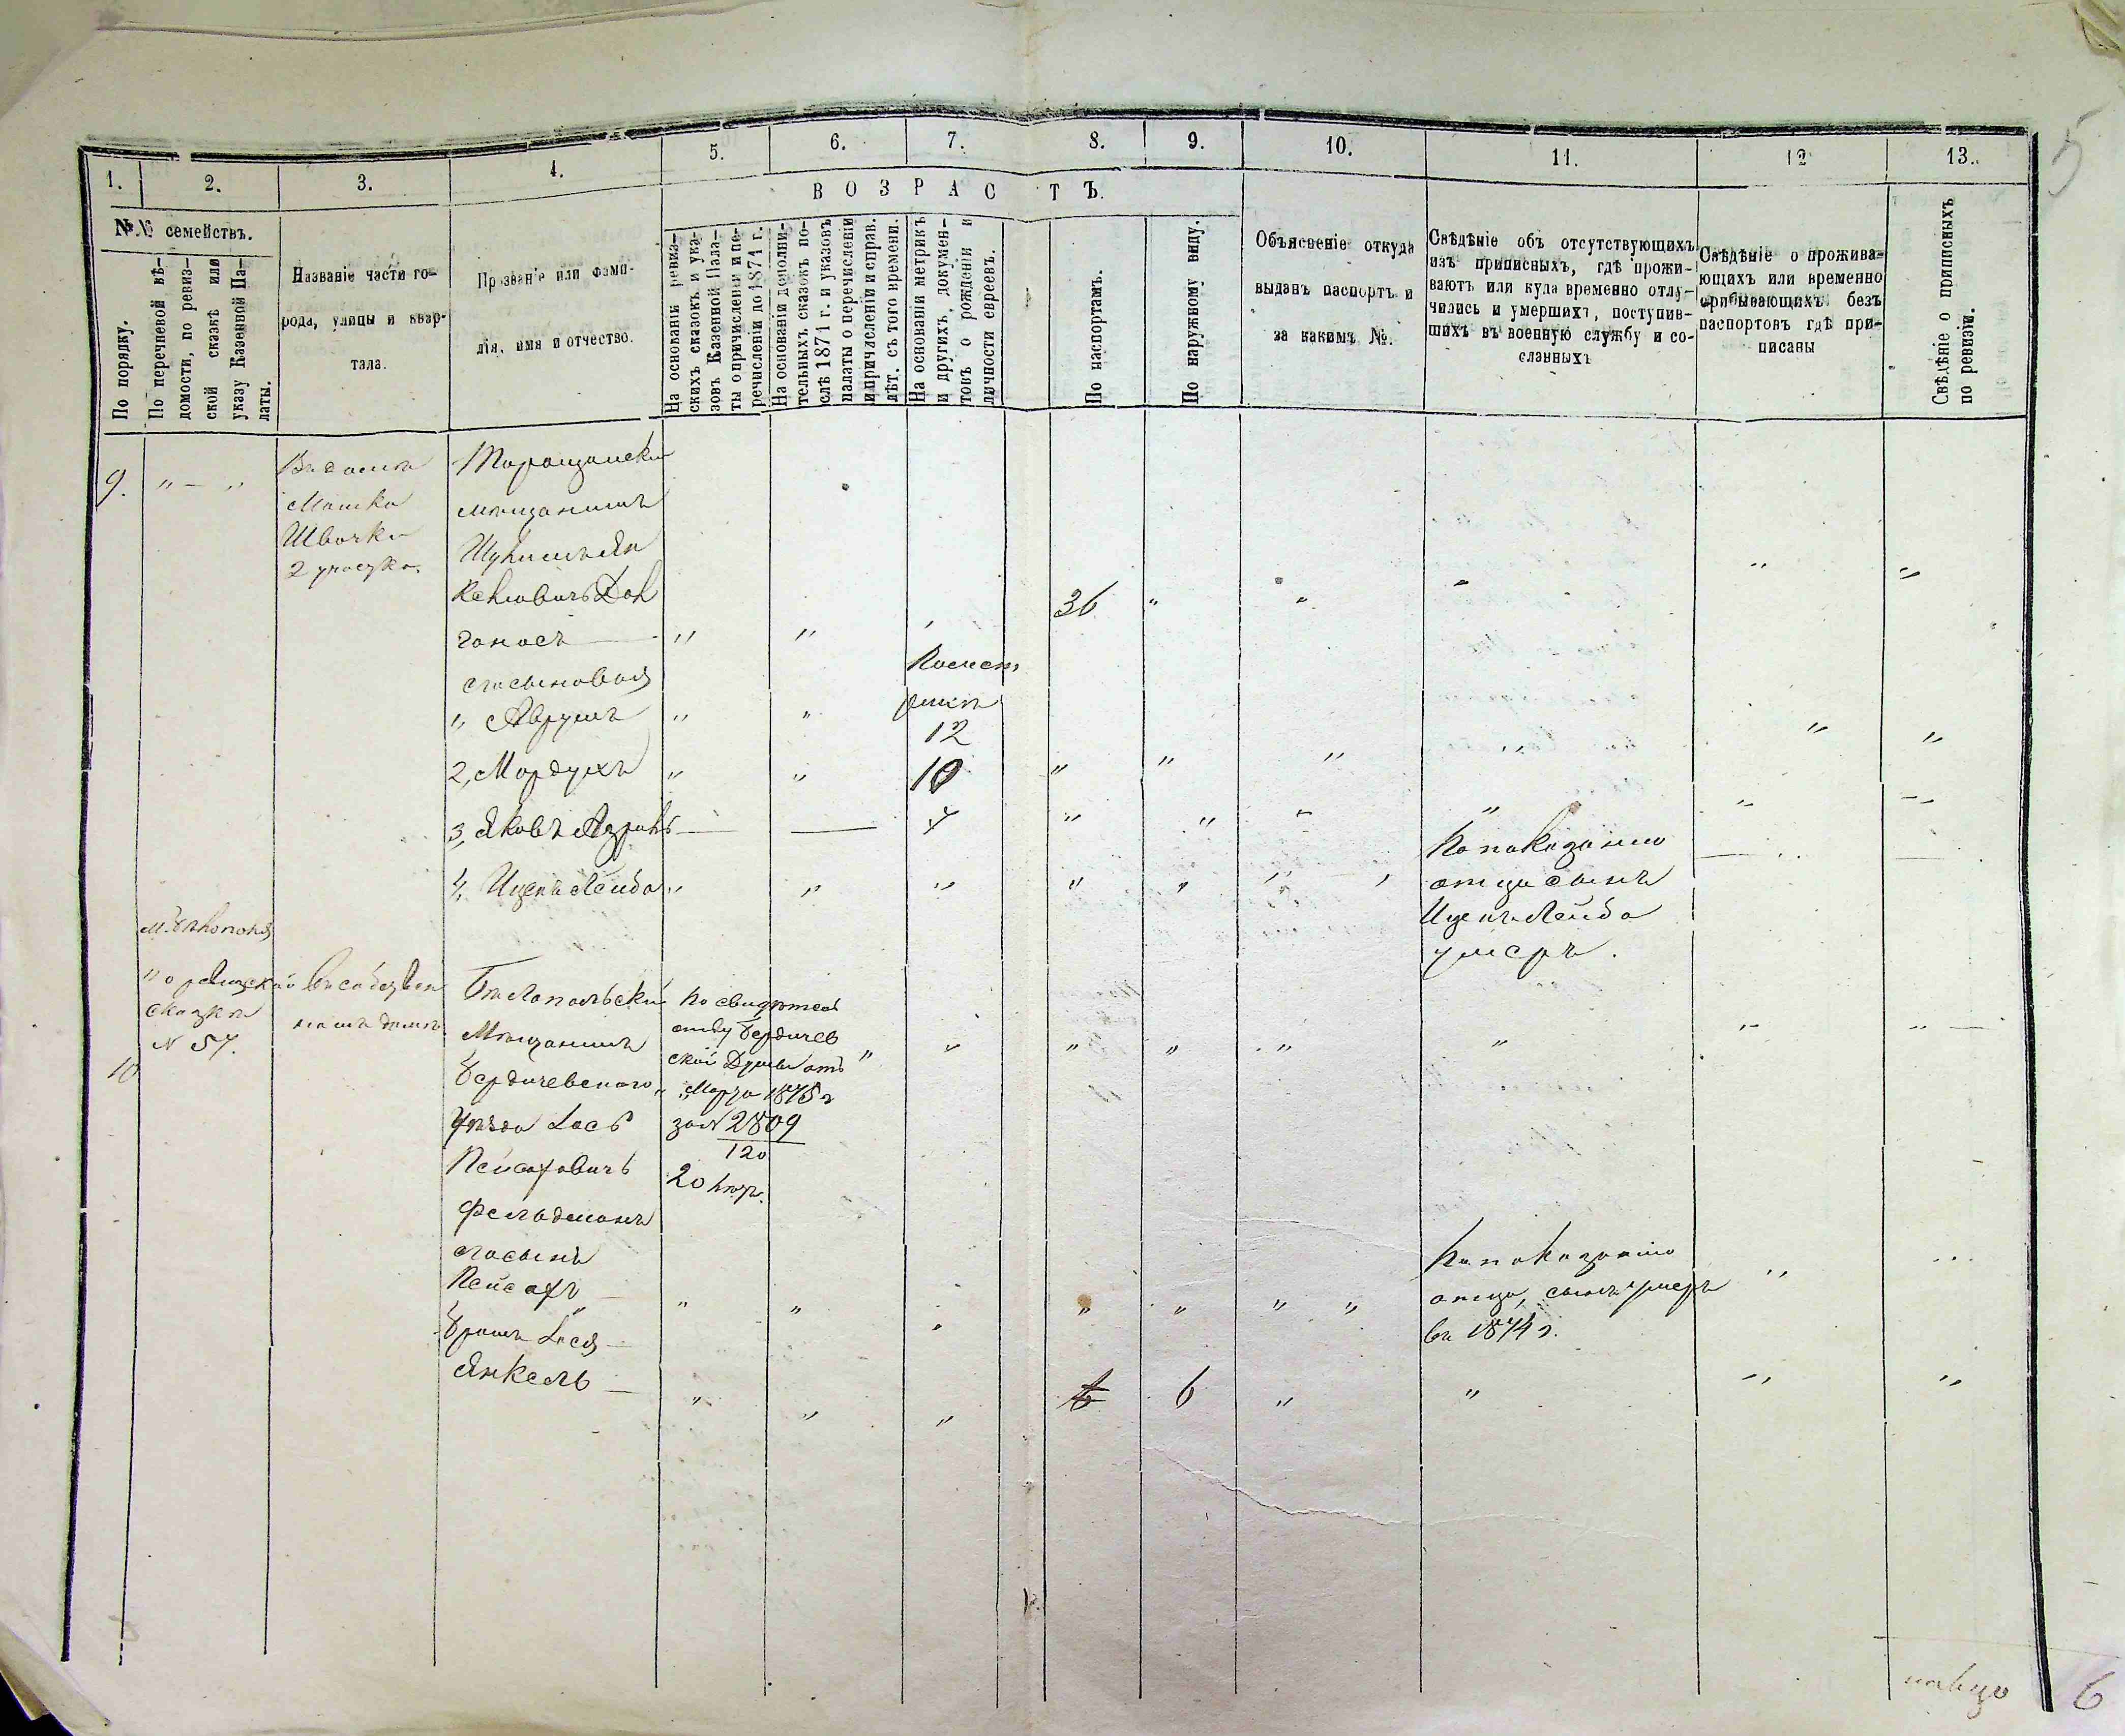 5
1. 2. 3. 4. 5. 6. 7. 8. 9. 10. 11. 12 13.
ВОЗРАСТЪ.
№№ семействъ.
По порядку.
По перечневой вѣ-
домости, по ревиз-
ской сказкѣ или
указу Казенной Па-
латы.
Названіе части го-
рода, улицы и квар-
тала.
Прозваніе или фами-
лія, имя и отчество.
На основаніи ревиз-
скихъ сказокъ и ука-
зовъ Казенной Пала-
ты о причисленіи и пе-
речисленіи до 1871 г.
На основаніи дополни-
тельныхъ сказокъ по-
слѣ 1871 г. и указовъ
палаты о перечисленіи
и причисленіи и справ.
лѣт. съ того времени.
На основаніи метрикъ
и другихъ докумен-
товъ о рожденіи и
личности евреевъ.
По паспортамъ.
По наружному виду.
Объясненіе откуда
выданъ паспортъ и
за какимъ №.
Свѣдѣніе объ отсутствующихъ
изъ приписныхъ, гдѣ прожи-
ваютъ или куда временно отлу-
чились и умершихъ, поступив-
шихъ въ военную службу и со-
сланныхъ
Свѣдѣніе о прожива-
ющихъ или временно
прибывающихъ безъ
паспортовъ гдѣ при-
писаны
Свѣдѣніе о приписныхъ
по ревизіи.
9. " — "
Въ домѣ
Мошка
Швачки
2 участка.
Таращанскій
мѣщанинъ
Ян
келіовичъ Дол
гоносъ — " " 36 " " " " "
его сыновья
По мет
рикѣ
1, Аврумъ " " 12
2, Мордухъ " " 10 " " " " " "
3, Яковъ Азріиль — — 7 " " " " " "
4, Ицекъ Лейба " " " " " "
По показанію
отца сынъ
Ицекъ Лейба
умеръ.
10
ревизской
сказкѣ
№ 57.
домѣ
Бѣлопольскій
Мѣщанинъ
Бердичевскаго
Уѣзда Лось
Пейсаховичъ
Фельдманъ
По свидѣтель
ству Бердичев
ской Думы отъ
Марта 1875 г
за № 2809
120
20 лѣт.
его сынъ
Пейсахъ — " " " " " " "
По показанію
отца, сынъ умеръ
въ 1874 г.
Братъ Лося —
Янкель — " " " 6 6 " " " "
6